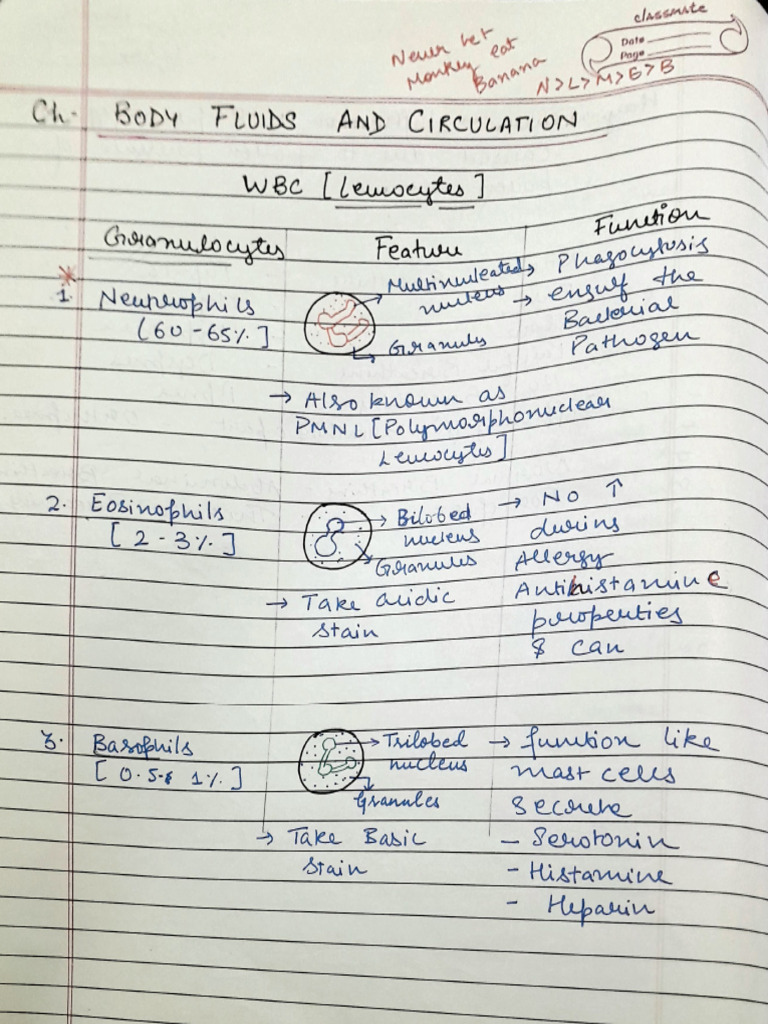 classmate
Date
Page
Never let
Monkey eat
Banana
N>L>M>E>B
Ch. BODY FLUIDS AND CIRCULATION
WBC [Leucocytes]
Granulocytes Feature Function
1. Neutrophils
[60-65%]
→ Multinucleated
nucleus
→ Granules
→ Phagocytosis
→ engulf the
Bacterial
Pathogen
→ Also known as
PMNL [Polymorphonuclear
Leucocytes]
2. Eosinophils
[2-3%]
→ Bilobed
nucleus
Granules
→ Take acidic
stain
→ No ↑
during
Allergy
Antihistamine
properties
& can
3. Basophils
[0.5- 1%]
→ Trilobed
nucleus
Granules
→ Take Basic
stain
→ function like
mast cells
secrete
- Serotonin
- Histamine
- Heparin